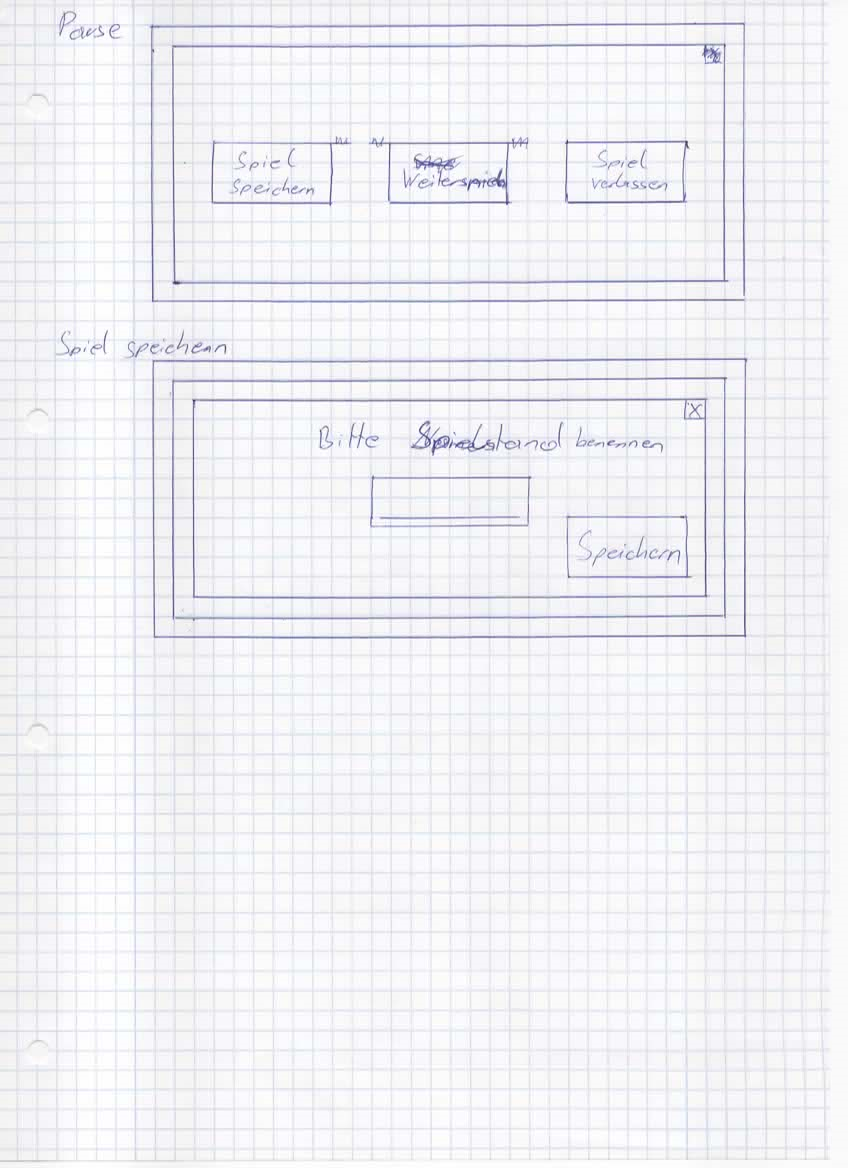 Pause
Spiel
Speichern
Weiterspielen
Spiel
verlassen
Spiel speichern
X
Bitte Spielstand benennen
Speichern